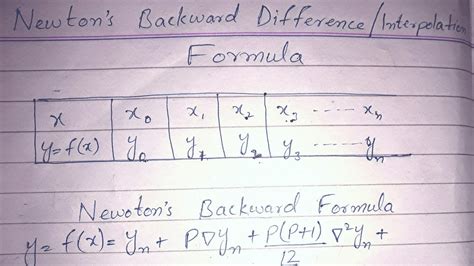 Newton's Backward Difference/Interpolation
Formula
x x₀ x₁ x₂ x₃ ------ xₙ
y=f(x) y₀ y₁ y₂ y₃ ------ yₙ
Newoton's Backward Formula
y = f(x) = yₙ + P∇yₙ + P(P+1)/12 ∇²yₙ +